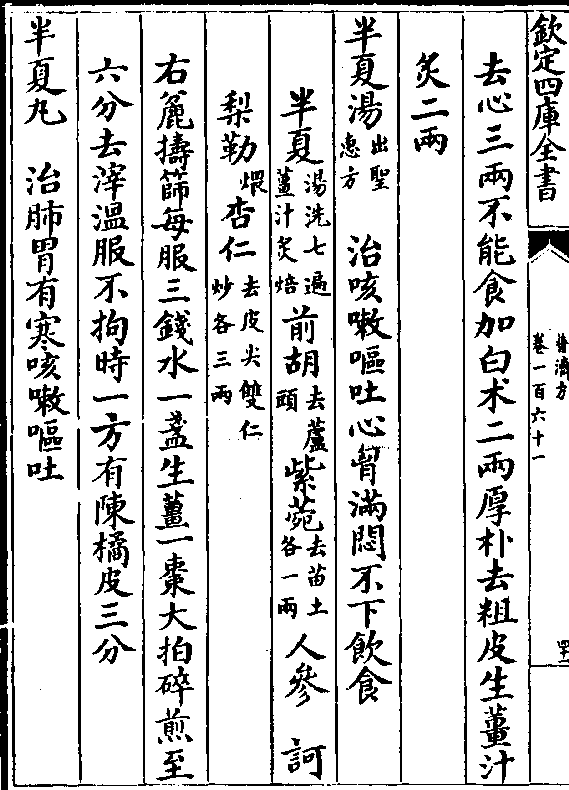 欽定四庫全書
普濟方
卷一百六十一
去心三兩不能食加白术二兩厚朴去粗皮生薑汁
炙二兩
半夏湯出聖惠方 治咳嗽嘔吐心胷滿悶不下飲食
半夏湯洗七遍薑汁炙焙前胡去蘆頭紫菀去苗土各一兩人參 訶
梨勒煨杏仁去皮尖雙仁炒各三兩
右麄擣篩每服三錢水一盞生薑一棗大拍碎煎至
六分去滓溫服不拘時一方有陳橘皮三分
半夏丸 治肺胃有寒咳嗽嘔吐